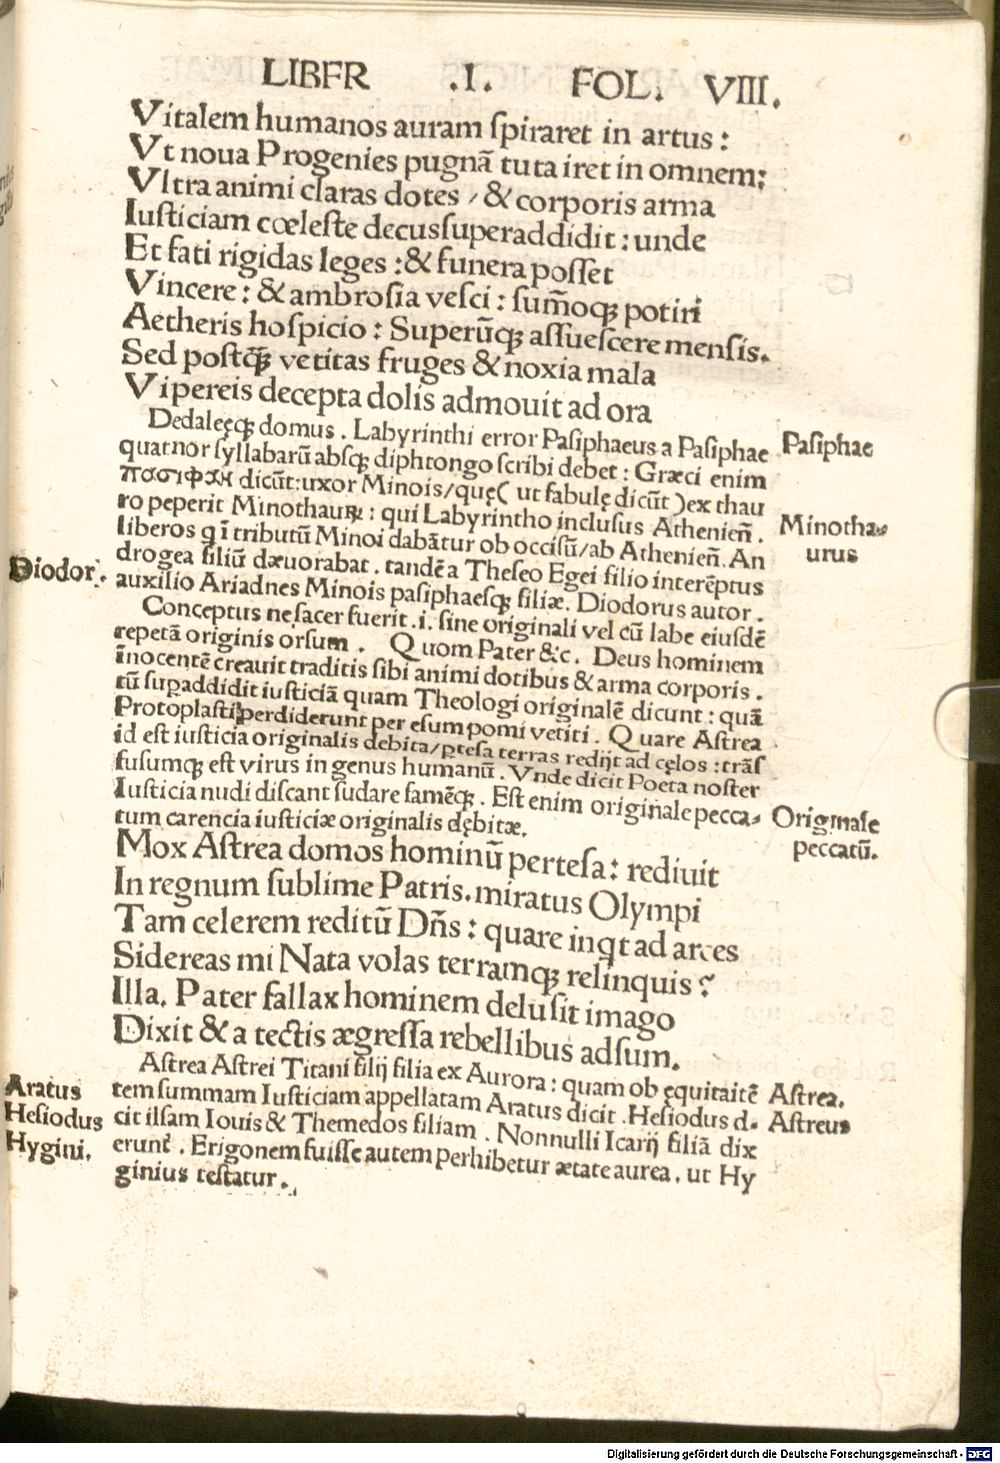 LIBER .I. FOL. VIII.
Vitalem humanos auram ſpiraret in artus :
Vt noua Progenies pugnã tuta iret in omnem;
Vltra animi claras dotes / & corporis arma
Iuſticiam cœleſte decus ſuperaddidit : unde
Et fati rigidas leges : & funera poſſet
Vincere : & ambroſia veſci : ſum̃oqꝫ potiri
Aetheris hoſpicio : Superũqꝫ aſſueſcere menſis.
Sed poſtq̃ꝫ vetitas fruges & noxia mala
Vipereis decepta dolis admouit ad ora
Dedaleęqꝫ domus . Labyrinthi error Paſiphaeus a Paſiphae
quatnor ſyllabarũ abſqꝫ diphtongo ſcribi debet : Græci enim
πασιφαη dicũt : uxor Minois / quę ( ut fabulę dicũt ) ex thau
ro peperit Minothauꝝ : qui Labyrintho incluſus Athenien̄ .
liberos q ĩ tributũ Minoi dabãtur ob occiſũ / ab Athenien̄ . An
drogea filiũ dæuorabat . tandẽ a Theſeo Egei filio interẽptus
auxilio Ariadnes Minois paſiphaeſqꝫ filiæ. Diodorus autor .
Conceptus ne ſacer fuerit .i. ſine originali vel cũ labe eiuſdẽ
repetã originis orſum . Quom Pater &c. Deus hominem
ĩnocentẽ creauit traditis ſibi animi dotibus & arma corporis .
tũ suꝑaddidit iuſticiã quam Theologi originalẽ dicunt : quã
Protoplaſti perdiderunt per eſum pomi vetiti . Quare Aſtrea
id est iuſticia originalis debita / ꝑteſa terras redijt ad cęlos : trãſ
fuſumqꝫ eſt virus in genus humanũ . Vnde dicit Poeta noſter
Iuſticia nudi diſcant ſudare famẽqꝫ . Eſt enim originale pecca-
tum carencia iuſticiæ originalis dębitæ.
Mox Aſtrea domos hominũ perteſa : rediuit
In regnum ſublime Patris. miratus Olympi
Tam celerem reditũ Dñs : quare inqt ad arces
Sidereas mi Nata volas terramqꝫ relinquis ?
Illa. Pater fallax hominem deluſit imago
Dixit & a tectis ægreſſa rebellibus adſum.
Aſtrea Aſtrei Titani filij filia ex Aurora : quam ob ęquitaitẽ
tem ſummam Iuſticiam appellatam Aratus dicit . Heſiodus d-
cit illam Iouis & Themedos filiam . Nonnulli Icarij filiã dix
erunt . Erigonem fuiſſe autem perhibetur ætate aurea . ut Hy
ginius teſtatur .
Paſiphae
Minotha-
urus
Diodor.
Originale
peccatũ.
Aſtrea.
Aſtreus
Aratus
Heſiodus
Hygini.
Digitalisierung gefördert durch die Deutsche Forschungsgemeinschaft - DFG